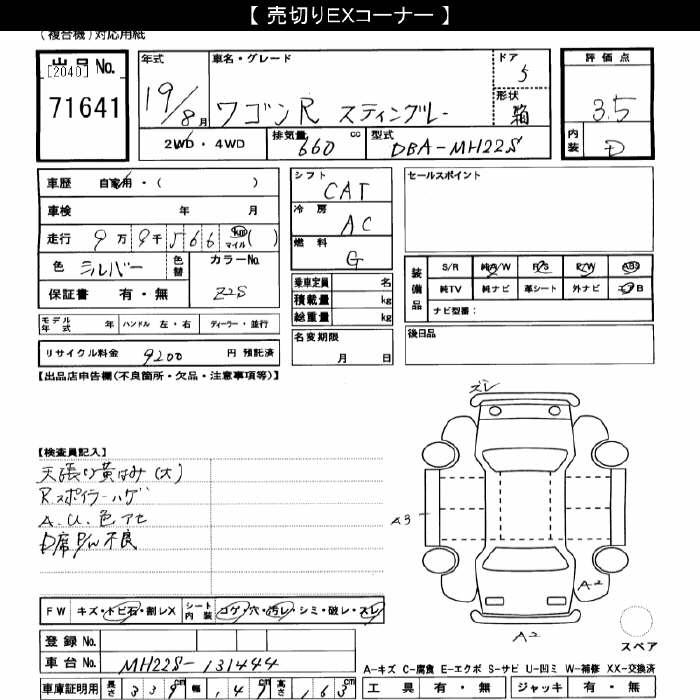 【 売切りEXコーナー 】
(複合機)対応用紙
出品No.
[2040]
71641
年式
19/8月
車名・グレード
ワゴンR スティングレー
ドア
5
形状
箱
評価点
3.5
内装
D
2WD・4WD
排気量
660
cc
型式
DBA-MH22S
車歴 自家用・( )
車検 年 月
走行 9万9千566 km マイル ( )
色 シルバー
色替
カラーNo.
Z2S
保証書 有・無
シフト
CAT
冷房
AC
燃料
G
乗車定員 名
積載量 kg
総重量 kg
セールスポイント
装備品
S/R 純A/W P/S P/W ABS
純TV 純ナビ 革シート 外ナビ エアB
ナビ型番:
モデル年式 年 ハンドル 左・右 ディーラー・並行
リサイクル料金 9200 円 預託済
名変期限
月 日
後日品
【出品店申告欄(不良箇所・欠品・注意事項等)】
【検査員記入】
天張り黄ばみ(大)
R.スポイラーハゲ
A.U.色アセ
D席P/W不良
ズレ
A3
A2
A2
スペア
FW キズ・トビ石・割レX
シート内装
コゲ・穴・汚レ・シミ・破レ・スレ
登録No.
車台No. MH22S-131444
車庫証明用 長さ 339cm 幅 147cm 高さ 163cm
A-キズ C-腐食 E-エクボ S-サビ U-凹ミ W-補修 XX-交換済
工具 有・無 ジャッキ 有・無